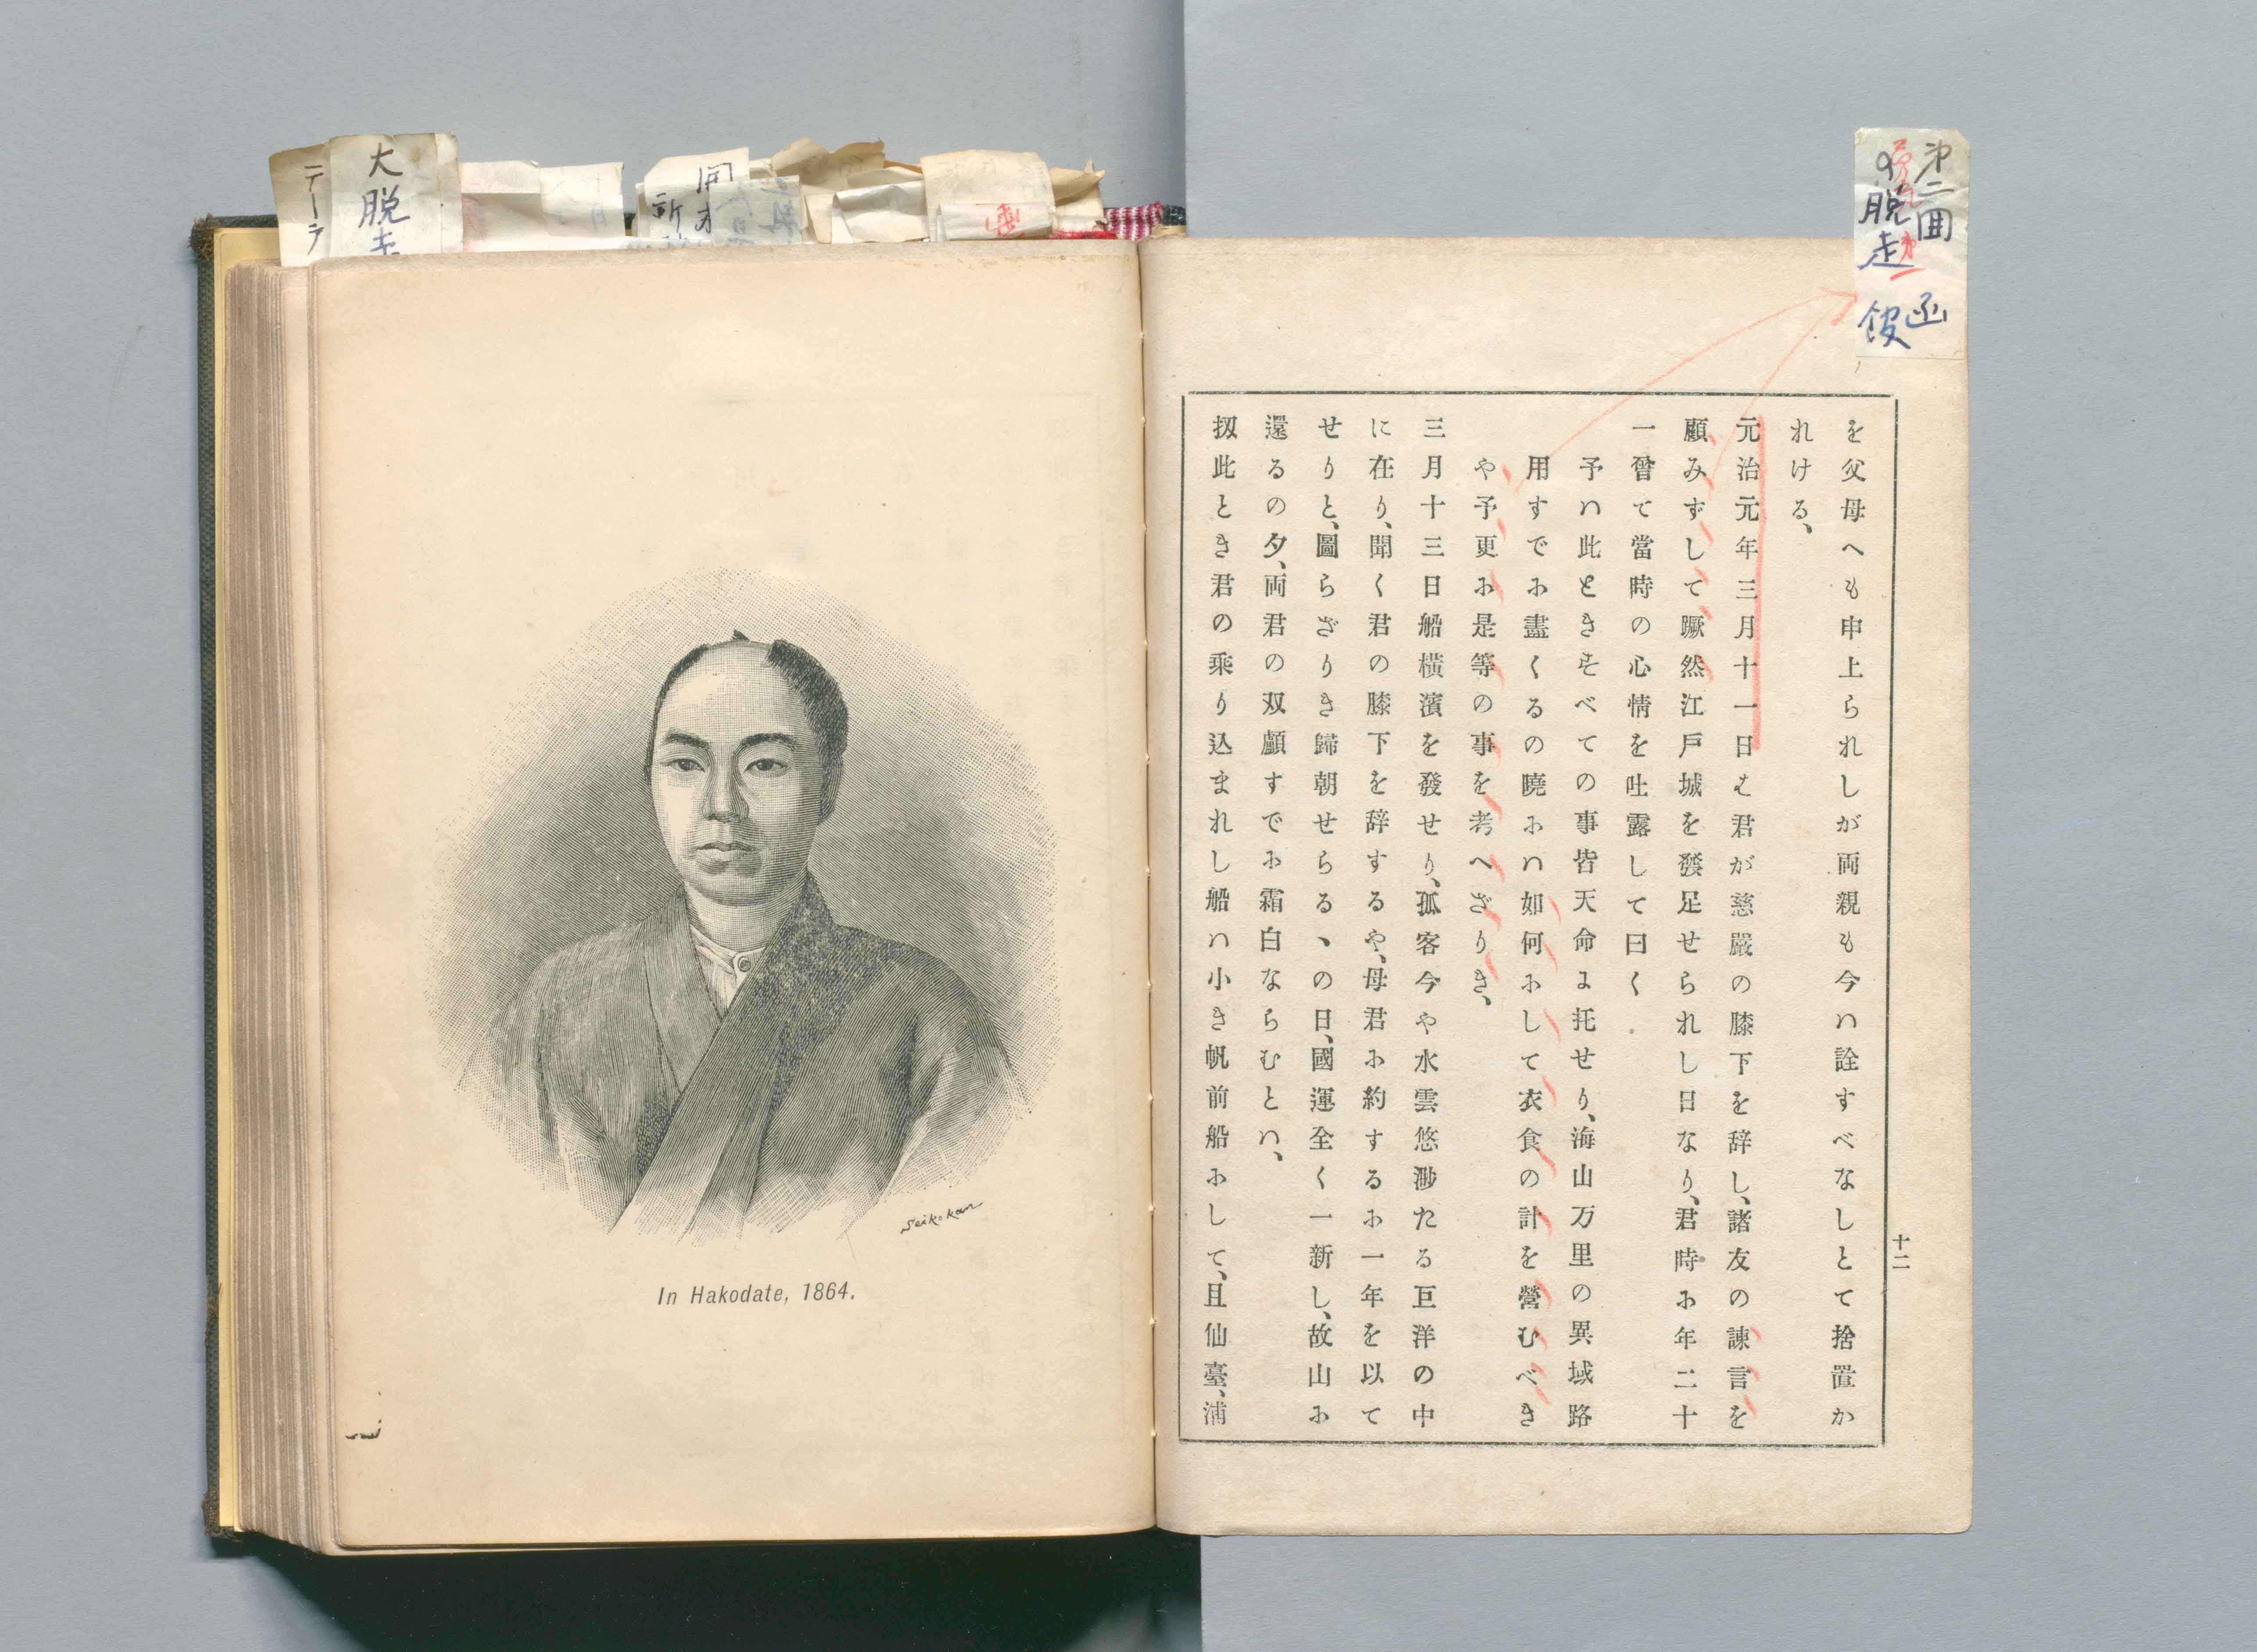 を父母へも申上られしが両親も今ハ詮すべなしとて捨置か
れける、
元治元年三月十一日は君が慈嚴の膝下を辞し、諸友の諫言を
顧みずして、蹶然江戸城を發足せられし日なり、君時に年二十
一曾て當時の心情を吐露して曰く
予ハ此ときすべての事皆天命に托せり、海山万里の異域路
用すでに盡くるの曉にハ如何にして衣食の計を營むべき
や予更に是等の事を考へざりき、
三月十三日船横濱を發せり、孤客今や水雲悠渺たる巨洋の中
に在り、聞く君の膝下を辞するや、母君に約するに一年を以て
せりと、圖らざりき歸朝せらるゝの日、國運全く一新し、故山に
還るの夕、両君の双顱すでに霜白ならむとハ、
扨此とき君の乘り込まれし船ハ小き帆前船にして、且仙臺、浦
十二
第二囬
の脱走
函
館
Seikokan
In Hakodate, 1864.
大脱走
テーラ